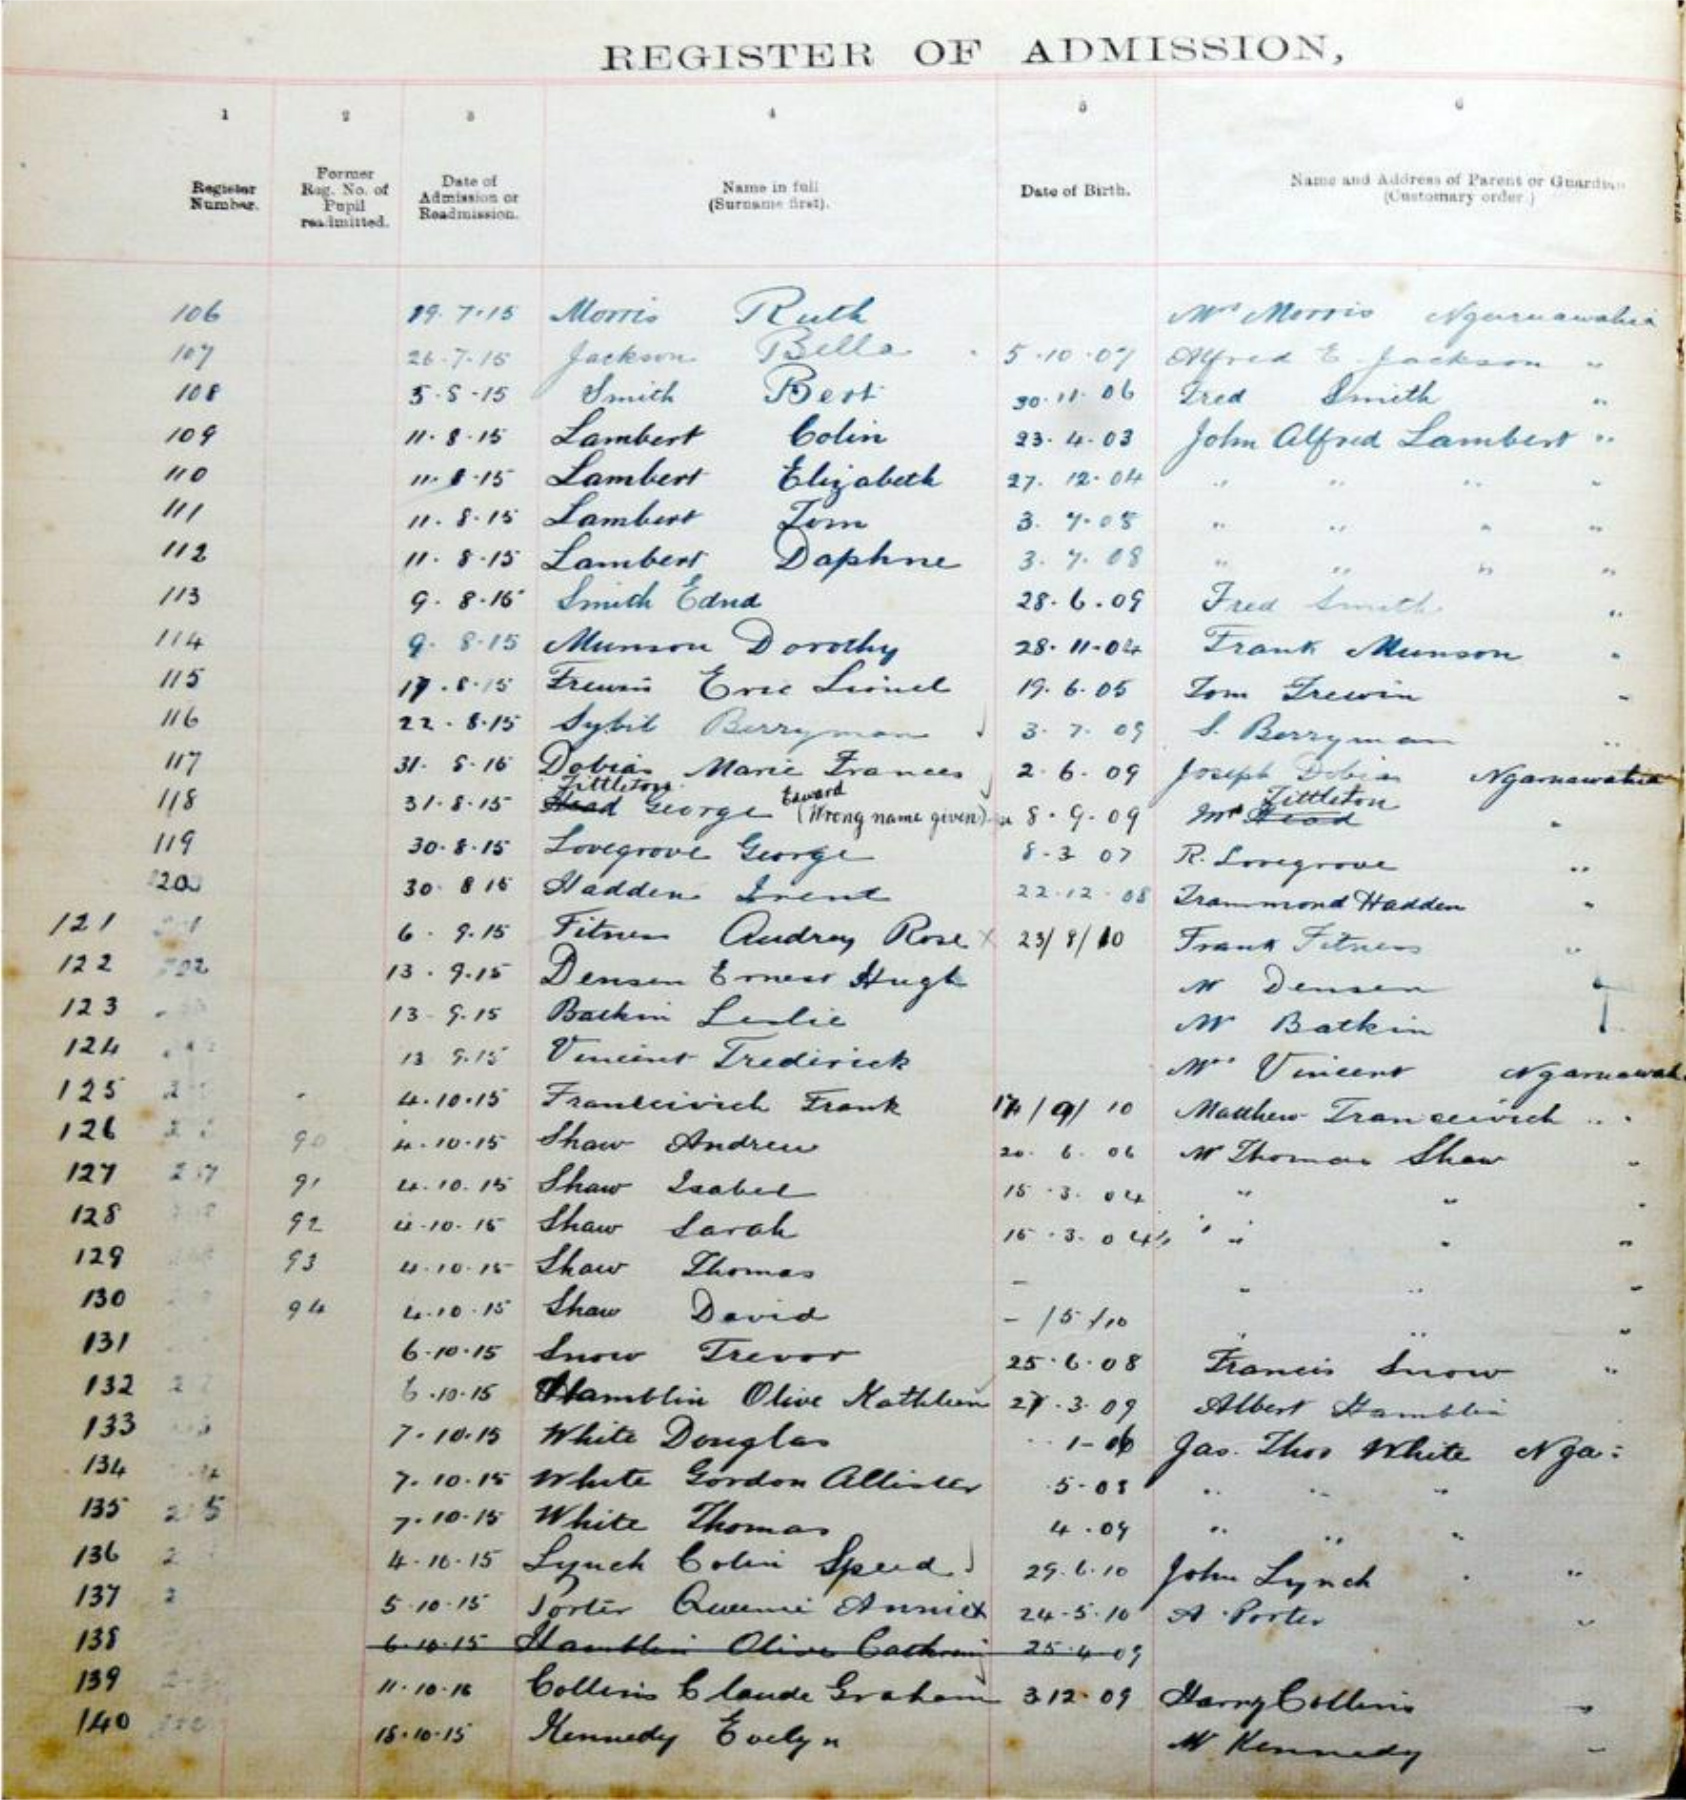 REGISTER OF ADMISSION,
1 2 3 4 5 6
Register Number. Former Reg. No. of Pupil readmitted. Date of Admission or Readmission. Name in full (Surname first). Date of Birth. Name and Address of Parent or Guardian (Customary order.)
106 19.7.15 Morris Ruth Mrs Morris Ngaruawahia
107 26.7.15 Jackson Bella 5.10.07 Alfred E. Jackson "
108 5.8.15 Smith Bert 30.11.06 Fred Smith "
109 11.8.15 Lambert Colin 23.4.03 John Alfred Lambert "
110 11.8.15 Lambert Elizabeth 27.12.04 " " " "
111 11.8.15 Lambert Tom 3.7.08 " " " "
112 11.8.15 Lambert Daphne 3.7.08 " " " "
113 9.8.15 Smith Edna 28.6.09 Fred Smith "
114 9.8.15 Munson Dorothy 28.11.04 Frank Munson "
115 17.8.15 Frewin Eric Lionel 19.6.05 Tom Frewin "
116 22.8.15 Sybil Berryman 3.7.09 S. Berryman "
117 31.8.15 Dobias Marie Frances 2.6.09 Joseph Dobias Ngaruawahia
118 31.8.15 Tittleton Head George Edward (Wrong name given) 8.9.09 Mr Tittleton Head "
119 30.8.15 Lovegrove George 8.3.07 R. Lovegrove "
30.8.15 Hadden 22.12.08 Hadden "
121 6.9.15 Fitness Audrey Rose x 23/8/10 Frank Fitness "
122 13.9.15 Densen Ernest Hugh Mr Densen
123 13.9.15 Batkin Leslie Mr Batkin
124 13.9.15 Vincent Frederick Mrs Vincent Ngaruawah
125 4.10.15 Franceivich Frank /9/10 Matthew Franceivich "
126 90 4.10.15 Shaw Andrew 20.6.06 Mr Thomas Shaw "
127 91 4.10.15 Shaw Isabel 15.3.04 " " "
128 92 4.10.15 Shaw Sarah 15.3.04 " " "
129 93 4.10.15 Shaw Thomas - " " "
130 94 4.10.15 Shaw David - /5/10 " " "
131 6.10.15 Snow Trevor 25.6.08 Francis Snow "
132 6.10.15 Hamblin Olive Kathleen 27.3.09 Albert Hamblin
133 7.10.15 White Douglas 1-06 Jas. Thos White Nga:
134 7.10.15 White Gordon Allister 5-08 " " "
135 7.10.15 White Thomas 4.09 " " "
136 4.10.15 Lynch Colin Speed 29.6.10 John Lynch "
137 5.10.15 Porter Queenie Annie x 24-5-10 A. Porter "
138 6.10.15 Hamblin Olive 25.4.09
139 11.10.15 Collins Claude Graham 3.12.09 Harry Collins "
140 18.10.15 Kennedy Evelyn Mr Kennedy "